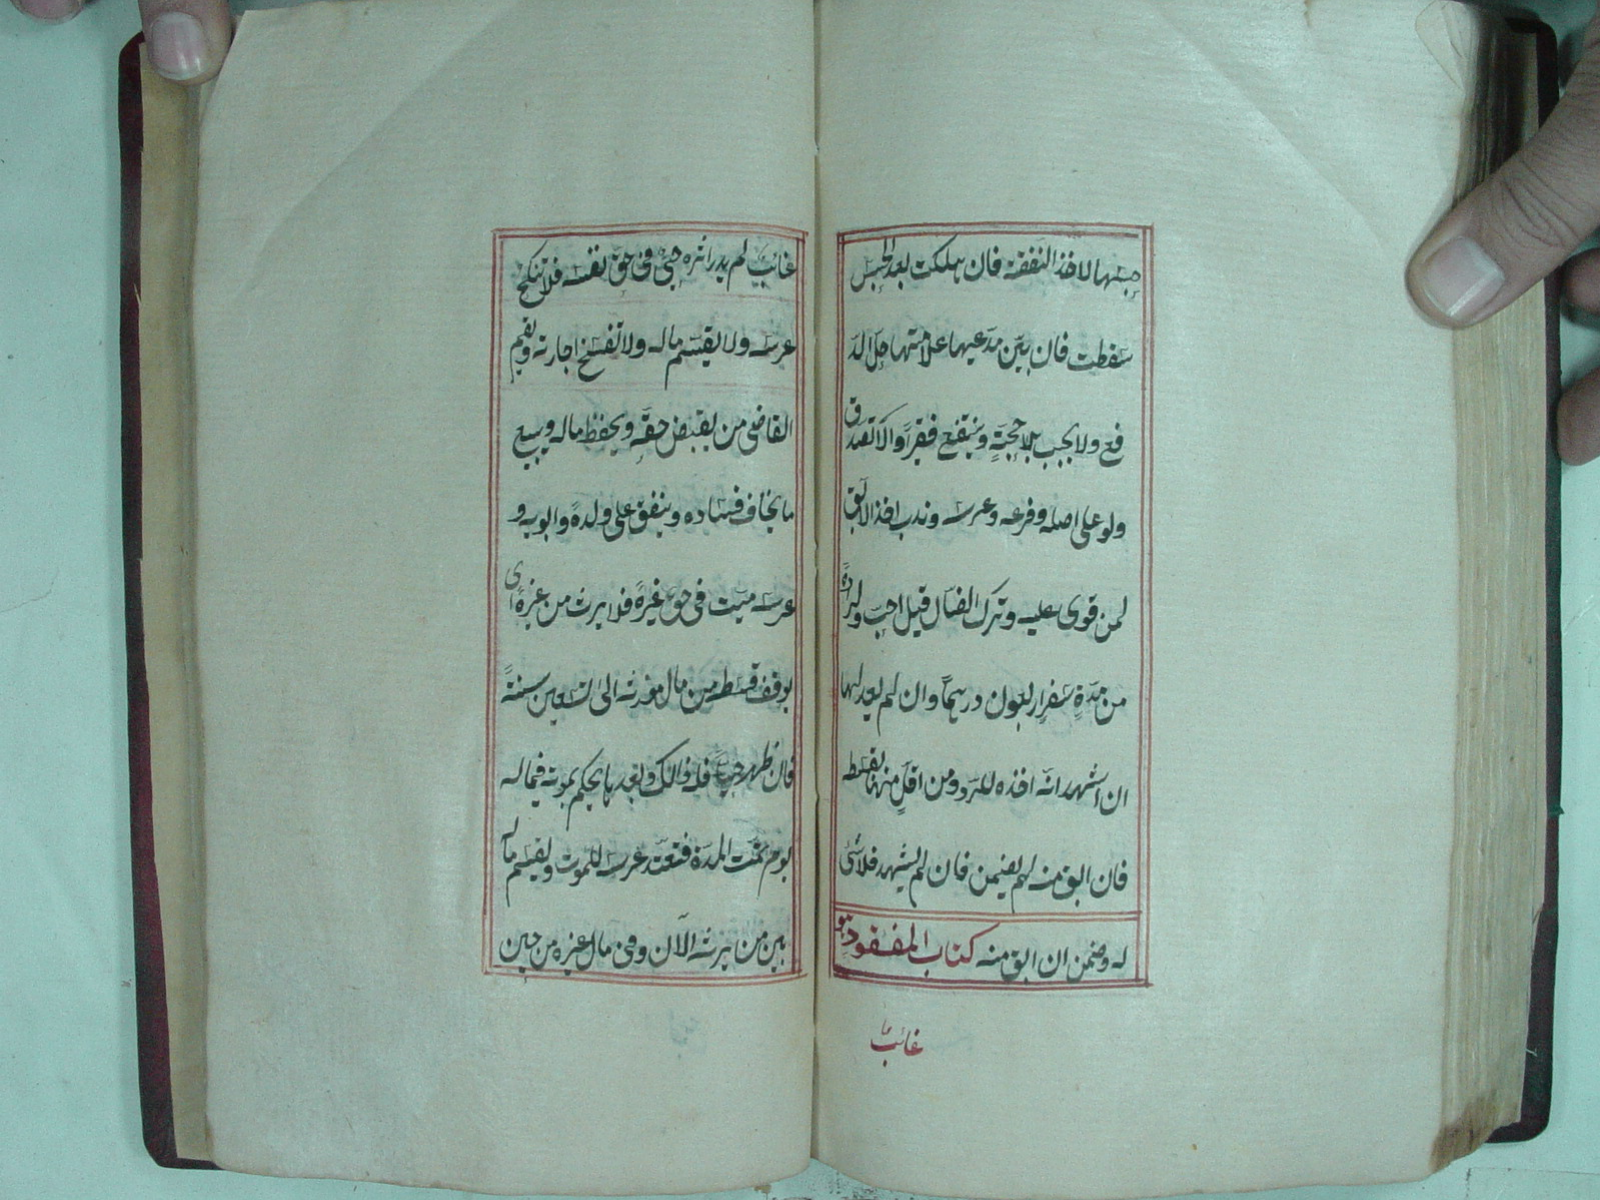 حبسها لاخذ النفقة فان هلكت بعد الحبس
سقطت فان بيّن مدعيها علامتها حلّ الد
فع ولا يجب بلا حجةٍ وينتفع فقيرًا والا تصدق
ولو على اصله وفرعه وعرسه وندب اخذ الابق
لمن قوى عليه وترك الضال قيل احب ولرادّه
من مدةِ سفرٍ اربعون درهمًا وان لم يعدلها
ان اشهد انه اخذه للرد ومن اقل منها بقسط
فان ابق منه لم يضمن فان لم يشهد فلا شئ
له وضمن ان ابق منه كتاب المفقود هو
غائب
غائب لم يدر اثره حىّ فى حق نفسه فلا تنكح
عرسه ولا يقسم ماله ولا تفسخ اجارته ويقيم
القاضى من يقبض حقه ويحفظ ماله ويبيع
ما يخاف فساده وينفق على ولده وابويه و
عرسه ميت فى حق غيره فلا يرث من غيره اى
يوقف قسطه من مال مورثه الى تسعين سنة
فان ظهر حيا فله ذالك وبعدها يحكم بموته فيما له
يوم تمت المدة فتعتد عرسه للموت ويقسم ماله
بين من يرثه الآن وفى مال غيره من حين